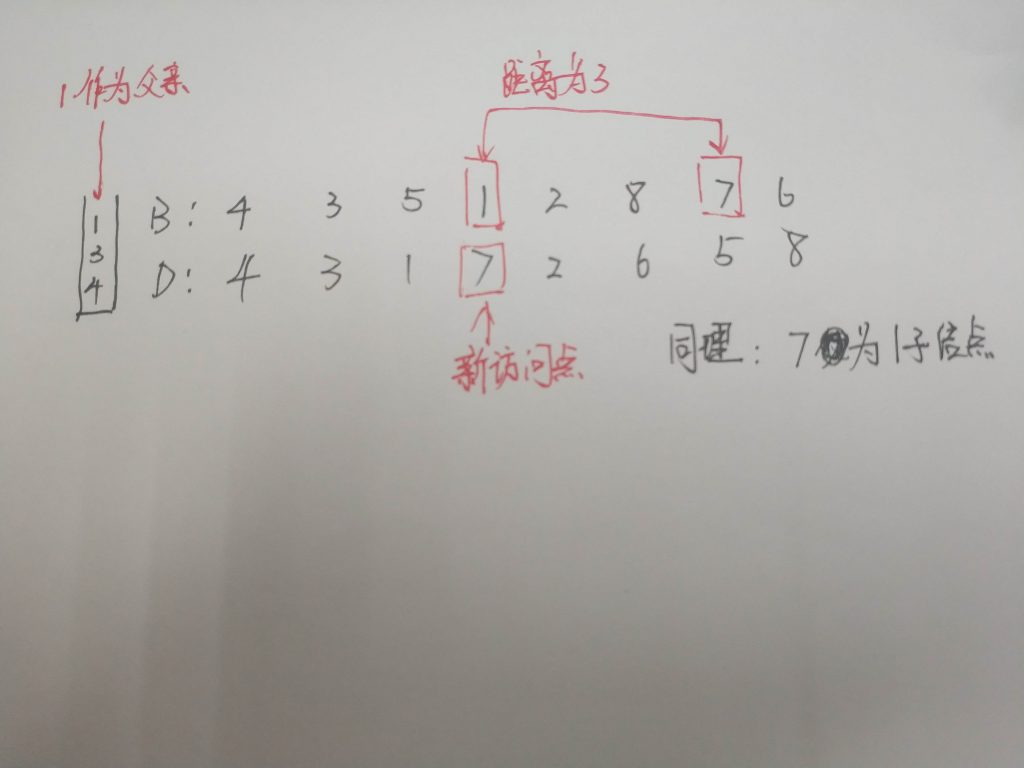 1作为父亲
距离为3
1
3
4
B: 4 3 5 1 2 8 7 6
D: 4 3 1 7 2 6 5 8
新访问点
同理: 7为1子结点